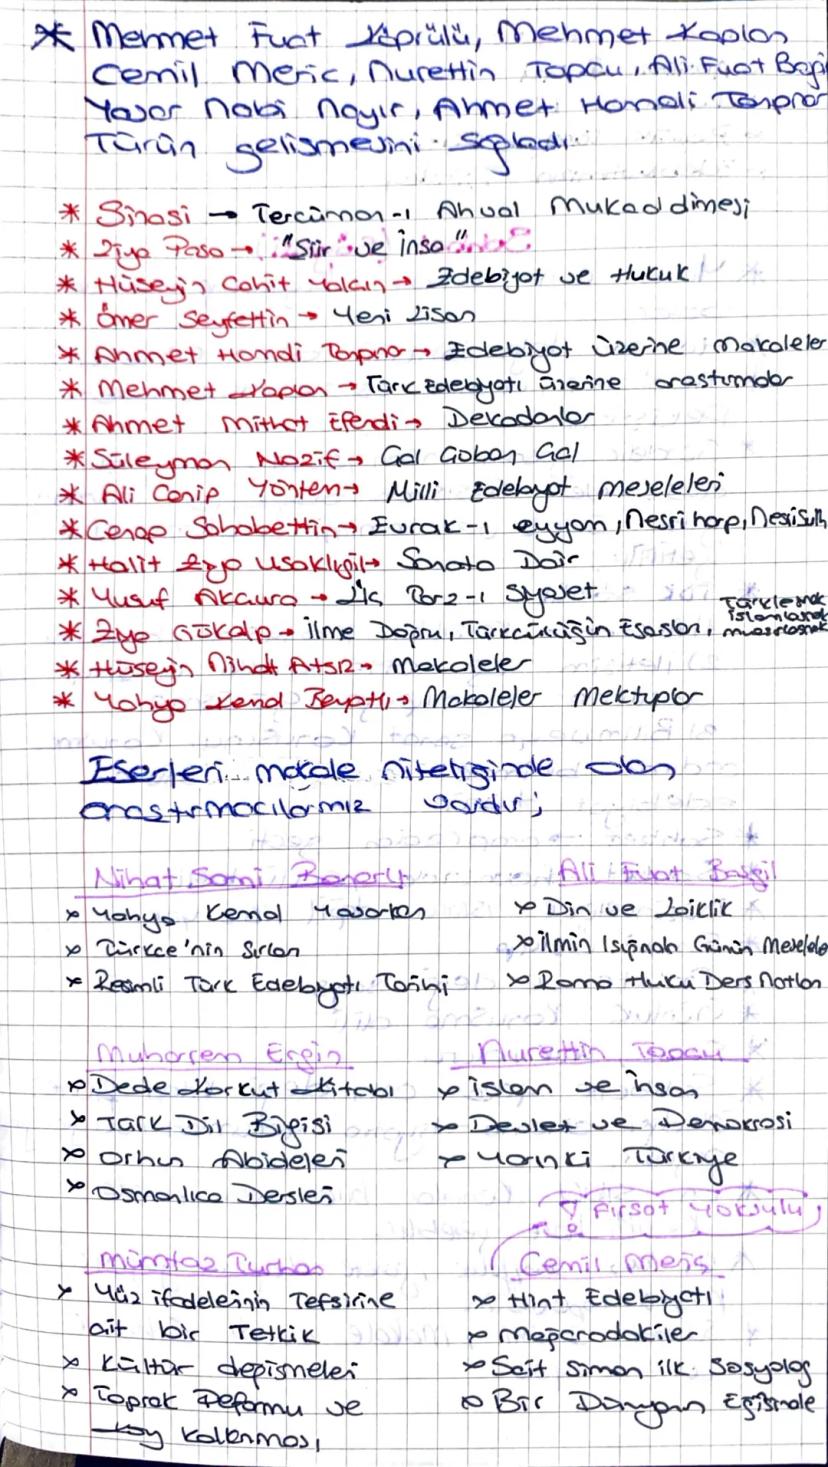 * Mehmet Fuat Köprülü, Mehmet Kaplan
Cemil Meriç, Nurettin Topçu, Ali Fuat Başgi
Yaşar Nabi Nayır, Ahmet Hamdi Tanpınar
Türün gelişmesini sağladı.
* Şinasi → Tercüman-ı Ahval Mukaddimesi
* Ziya Paşa → "Şiir ve İnşa"
* Hüseyin Cahit Yalçın → Edebiyat ve Hukuk
* Ömer Seyfettin → Yeni Lisan
* Ahmet Hamdi Tanpınar → Edebiyat Üzerine Makaleler
* Mehmet Kaplan → Türk Edebiyatı üzerine araştırmalar
* Ahmet Mithat Efendi → Dekadanlar
* Süleyman Nazif → Çal Çoban Çal
* Ali Canip Yöntem → Milli Edebiyat Meseleleri
* Cenap Şahabettin → Evrak-ı eyyam, Nesri harp, Nesri Sulh
* Halit Ziya Uşaklıgil → Sanata Dair
* Yusuf Akçura → Üç Tarz-ı Siyaset
* Ziya Gökalp → İlme Doğru, Türkçülüğün Esasları, Türkleşmek İslamlaşmak muasırlaşmak
* Hüseyin Nihal Atsız → Makaleler
* Yahya Kemal Beyatlı → Makaleler Mektuplar
Eserleri makale niteliğinde olan
araştırmacılarımız vardır;
Nihat Sami Banarlı
Yahya Kemal Yaşarken
Türkçe'nin Sırları
Resimli Türk Edebiyatı Tarihi
Ali Fuat Başgil
Din ve Laiklik
İlmin Işığında Günün Meselele
Roma Huku Ders Notları
Muharrem Ergin
Dede Korkut Kitabı
Türk Dil Bilgisi
Orhun Abideleri
Osmanlıca Dersleri
Nurettin Topçu
İslam ve İnsan
Devlet ve Demokrasi
Yarınki Türkiye
Mümtaz Turhan
Yüz ifadelerinin Tefsirine
ait bir Tetkik
Kültür değişmeleri
Toprak Reformu ve
köy kalkınması
! Fırsat Yoksulu
Cemil Meriç
Hint Edebiyatı
Mağaradakiler
Sait Simon ilk Sosyolog
Bir Dünyanın Eşiğinde